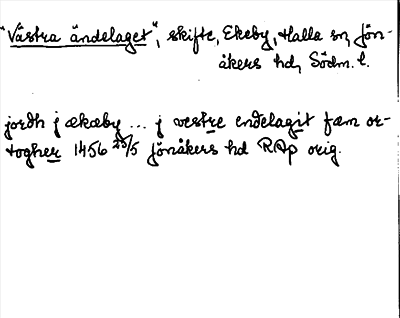 "Västra ändelaget", skifte, Ekeby, Halla sn, Jön-
åkers hd, Södm. l.
jordh j ækæby ... j vestre endelagit fæm or-
togher 1456 25/5 Jönåkers hd RAp orig.